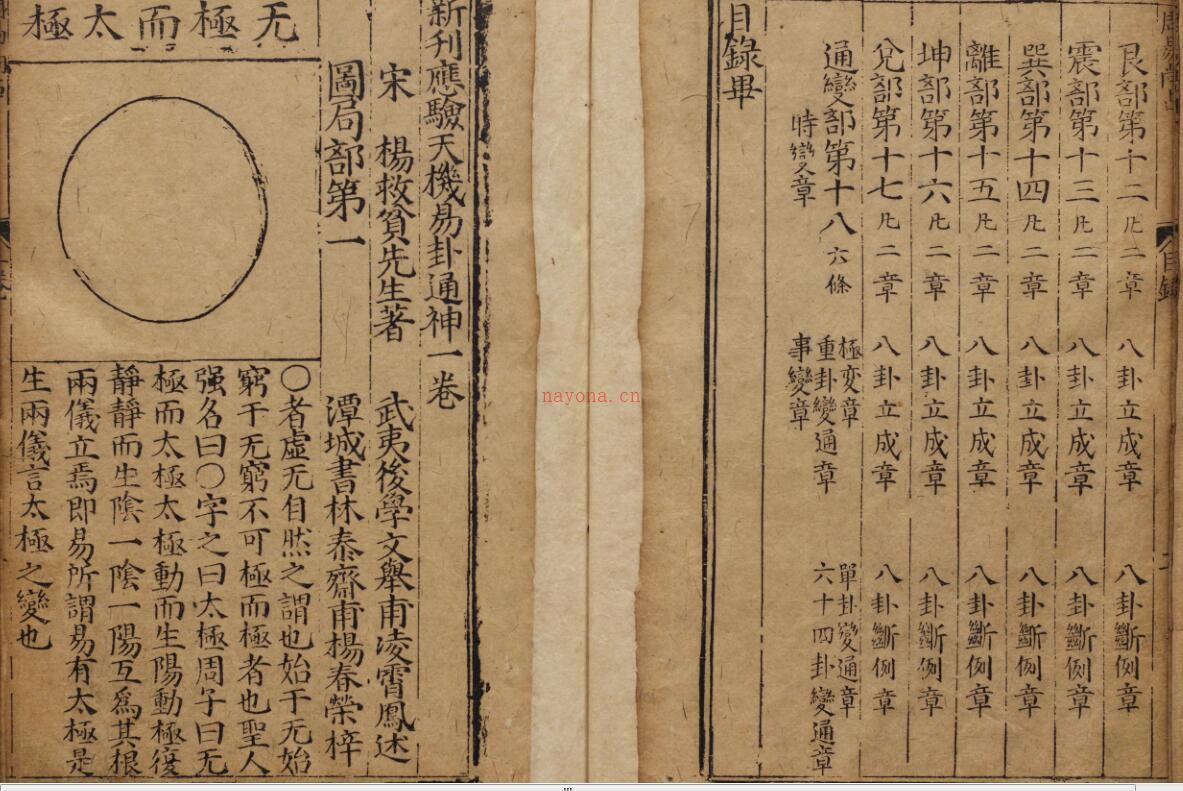 目錄
二
艮部第十二 凡二章 八卦立成章 八卦斷例章
震部第十三 凡二章 八卦立成章 八卦斷例章
巽部第十四 凡二章 八卦立成章 八卦斷例章
離部第十五 凡二章 八卦立成章 八卦斷例章
坤部第十六 凡二章 八卦立成章 八卦斷例章
兌部第十七 凡二章 八卦立成章 八卦斷例章
通變部第十八 六條 極変章 單卦變通章
重卦變通章 六十四卦變通章
時變章 事變章
目錄畢
新刊應驗天機易卦通神一卷
宋 楊救貧先生著 武夷後學文舉甫淩霄鳳述
圖局部第一 潭城書林泰齋甫楊春榮梓
无極而太極
〇者虛无自然之謂也始于无始
窮于无窮不可極而極者也聖人
强名曰〇字之曰太極周子曰无
極而太極太極動而生陽動極復
靜靜而生陰一陰一陽互爲其根
兩儀立焉即易所謂易有太極是
生兩儀言太極之變也
nayona.cn